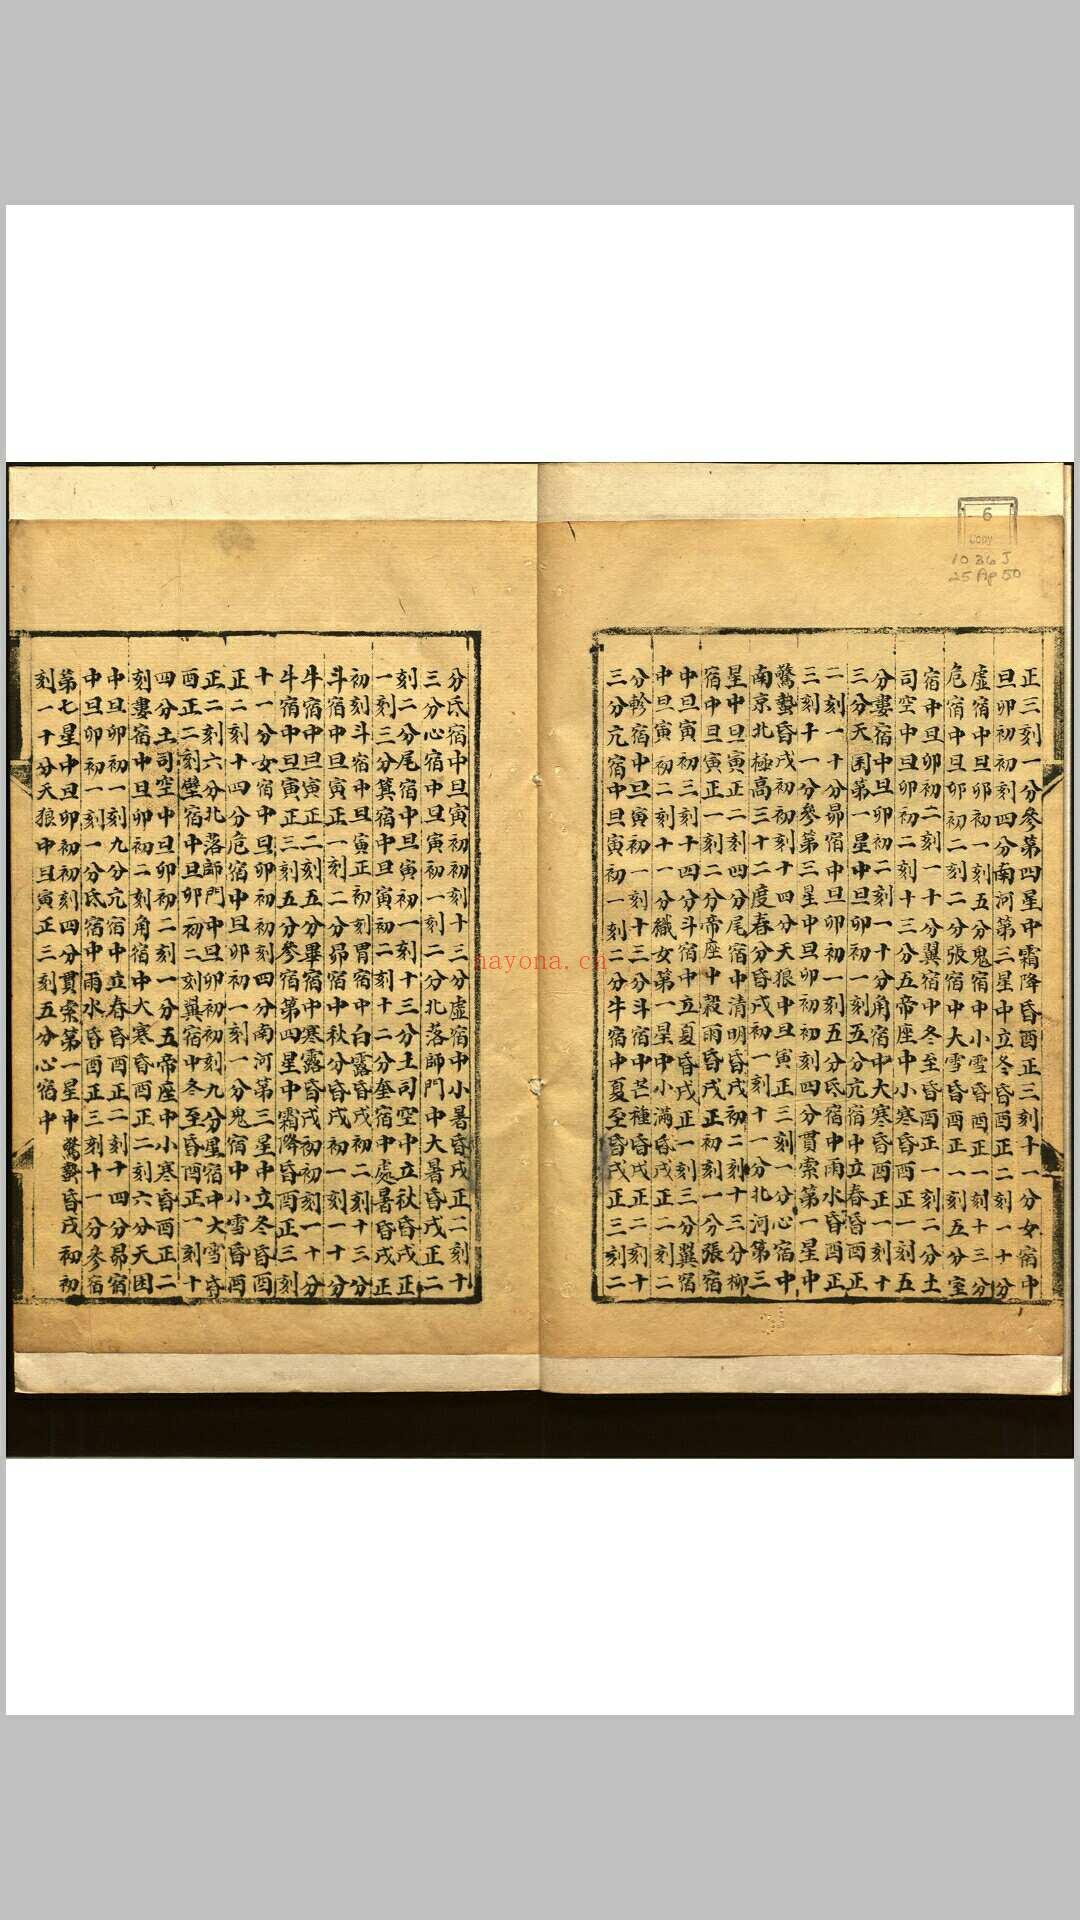 6
Copy
1036J
25 Ap 50
正三刻一分參第四星中霜降昏酉正三刻十一分女宿中
旦卯初初刻四分南河第三星中立冬昏酉正二刻一十分
虛宿中旦卯初一刻五分鬼宿中小雪昏酉正一刻十三分
危宿中旦卯初二刻二分張宿中大雪昏酉正一刻五分室
宿中旦卯初二刻一十分翼宿中冬至昏酉正一刻二分土
司空中旦卯初二刻十三分五帝座中小寒昏酉正一刻五
分婁宿中旦卯初二刻一十分角宿中大寒昏酉正一刻十
三分天囷第一星中旦卯初一刻五分亢宿中立春昏酉正
二刻一十分昴宿中旦卯初一刻五分氐宿中雨水昏酉正
三刻十一分參第三星中旦卯初初刻四分貫索第一星中
驚蟄昏戌初初刻十四分天狼中旦寅正三刻一分心宿中
南京北極高三十二度春分昏戌初一刻十一分北河第三
星中旦寅正二刻四分尾宿中清明昏戌初二刻十三分柳
宿中旦寅正一刻二分帝座中穀雨昏戌正初刻一分張宿
中旦寅初三刻十四分斗宿中立夏昏戌正一刻三分翼宿
中旦寅初二刻十一分織女第一星中小滿昏戌正二刻二
分軫宿中旦寅初一刻十三分斗宿中芒種昏戌正二
三分亢宿中旦寅初一刻二分牛宿中夏至昏戌正三刻二
分氐宿中旦寅初初刻十三分虛宿中小暑昏戌正二刻十
三分心宿中旦寅初一刻二分北落師門中大暑昏戌正二
刻二分尾宿中旦寅初一刻十三分土司空中立秋昏戌正
一刻三分箕宿中旦寅初二刻十二分奎宿中處暑昏戌正
初刻斗宿中旦寅正初刻胃宿中白露昏戌初二刻十三分
斗宿中旦寅正一刻二分昴宿中秋分昏戌初一刻一十分
牛宿中旦寅正二刻五分畢宿中寒露昏戌初初刻一十分
斗宿中旦寅正三刻五分參宿第四星中霜降昏酉正三刻
十一分女宿中旦卯初初刻四分南河第三星中立冬昏酉
正二刻十四分危宿中旦卯初一刻一分鬼宿中小雪昏酉
正二刻六分北落師門中旦卯初初刻九分星宿中大雪昏
酉正二刻壁宿中旦卯初二刻翼宿中冬至昏酉正一刻十
四分土司空中旦卯初二刻一分五帝座中小寒昏酉正二
刻婁宿中旦卯初二刻角宿中大寒昏酉正二刻六分天囷
中旦卯初一刻九分亢宿中立春昏酉正二刻十四分昴宿
中旦卯初一刻一分氐宿中雨水昏酉正三刻十一分參宿
第七星中旦卯初初刻四分貫索第一星中驚蟄昏戌初初
刻一十分天狼中旦寅正三刻五分心宿中
nayona.cn